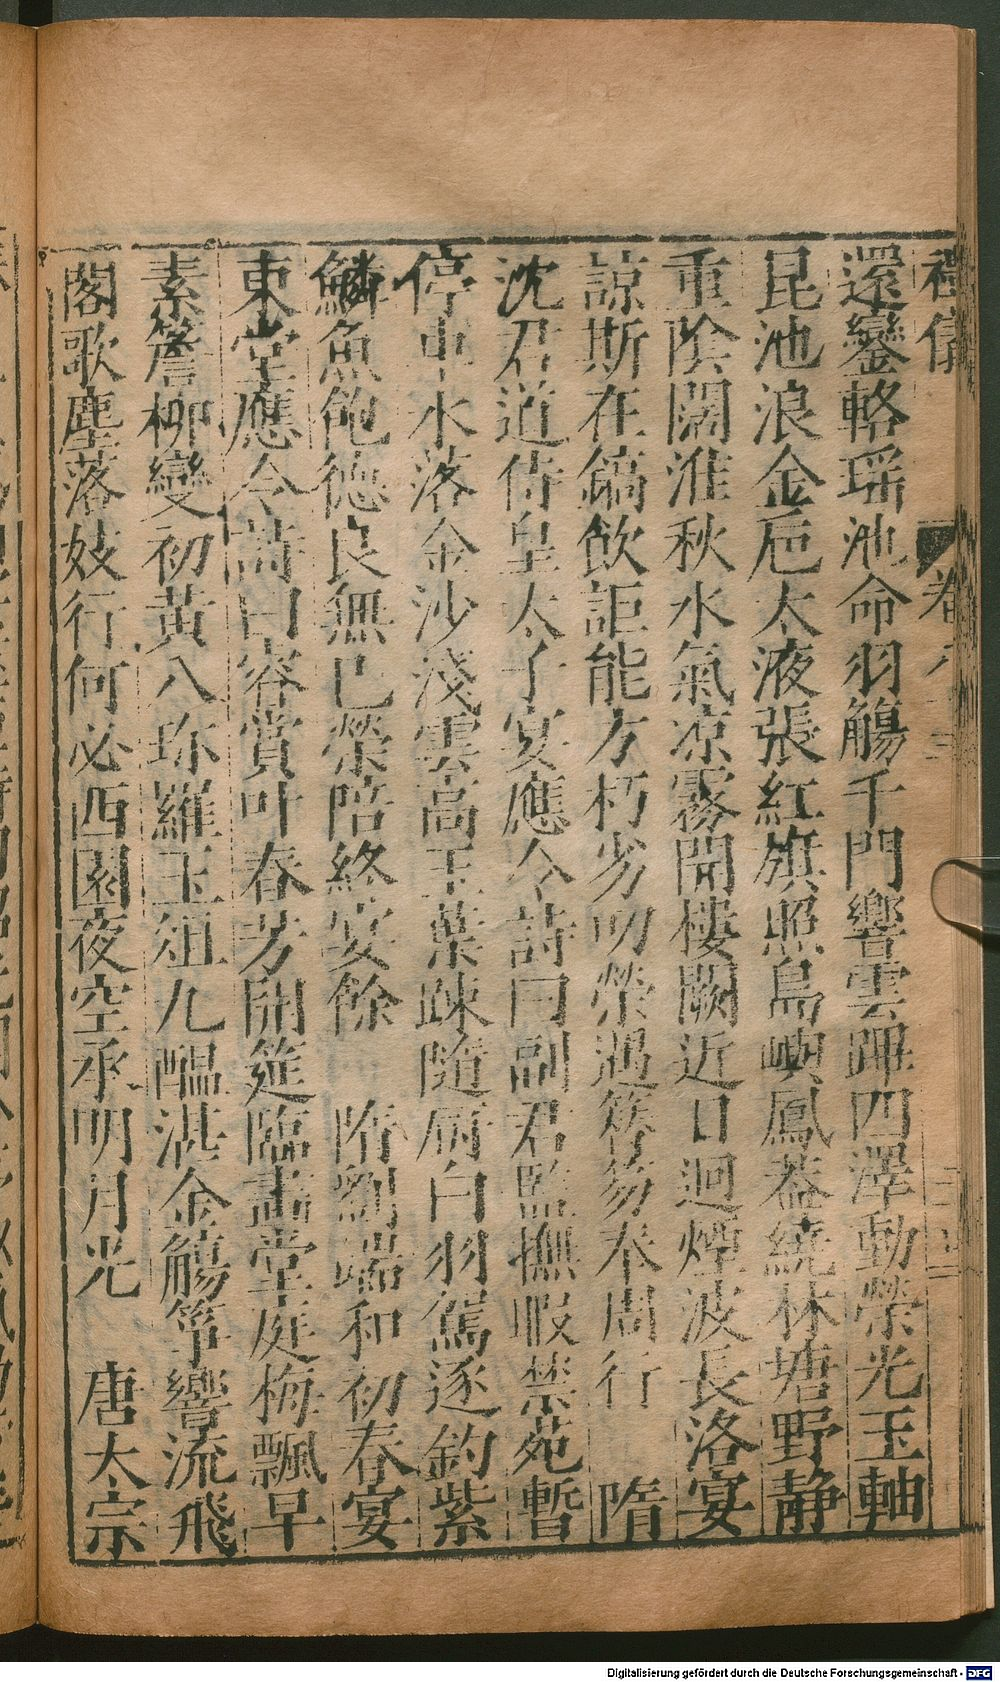 禮儀 卷八
還鑾輅瑶池命羽觴千門響雲蹕四澤動榮光玉軸
昆池浪金卮太液張紅旗照鳥嶼鳳葢繞林塘野静
重陰闊淮秋水氣凉霧開樓闕近日迥煙波長洛宴
諒斯在鎬飲詎能方朽劣叨榮遇簪笏奉周行 隋
沈君道侍皇太子宴應令詩曰副君監撫暇禁苑暫
停車水落金沙淺雲高玉葉踈隨厨白羽駕逐釣紫
鱗魚飽德良無已榮陪終宴餘 隋劉端和初春宴
東堂應令詩曰容賞叶春芳開筵臨畵堂庭梅飄早
素簷柳變初黃八珎羅玉俎九醖湛金觴箏響流飛
閣歌塵落妓行何必西園夜空承明月光 唐太宗
Digitalisierung gefördert durch die Deutsche Forschungsgemeinschaft - DFG